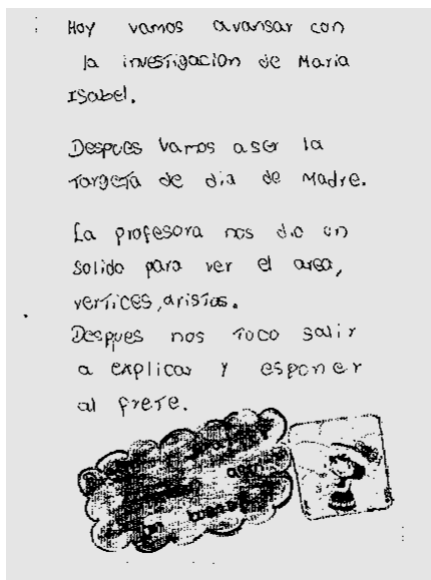 Hoy vamos avansar con
la investigacion de Maria
Isabel.
Despues vamos aser la
targeta de dia de Madre.
La profesora nos dio un
solido para ver el area,
vertices, aristas.
Despues nos toco salir
a explicar y esponer
al frete.